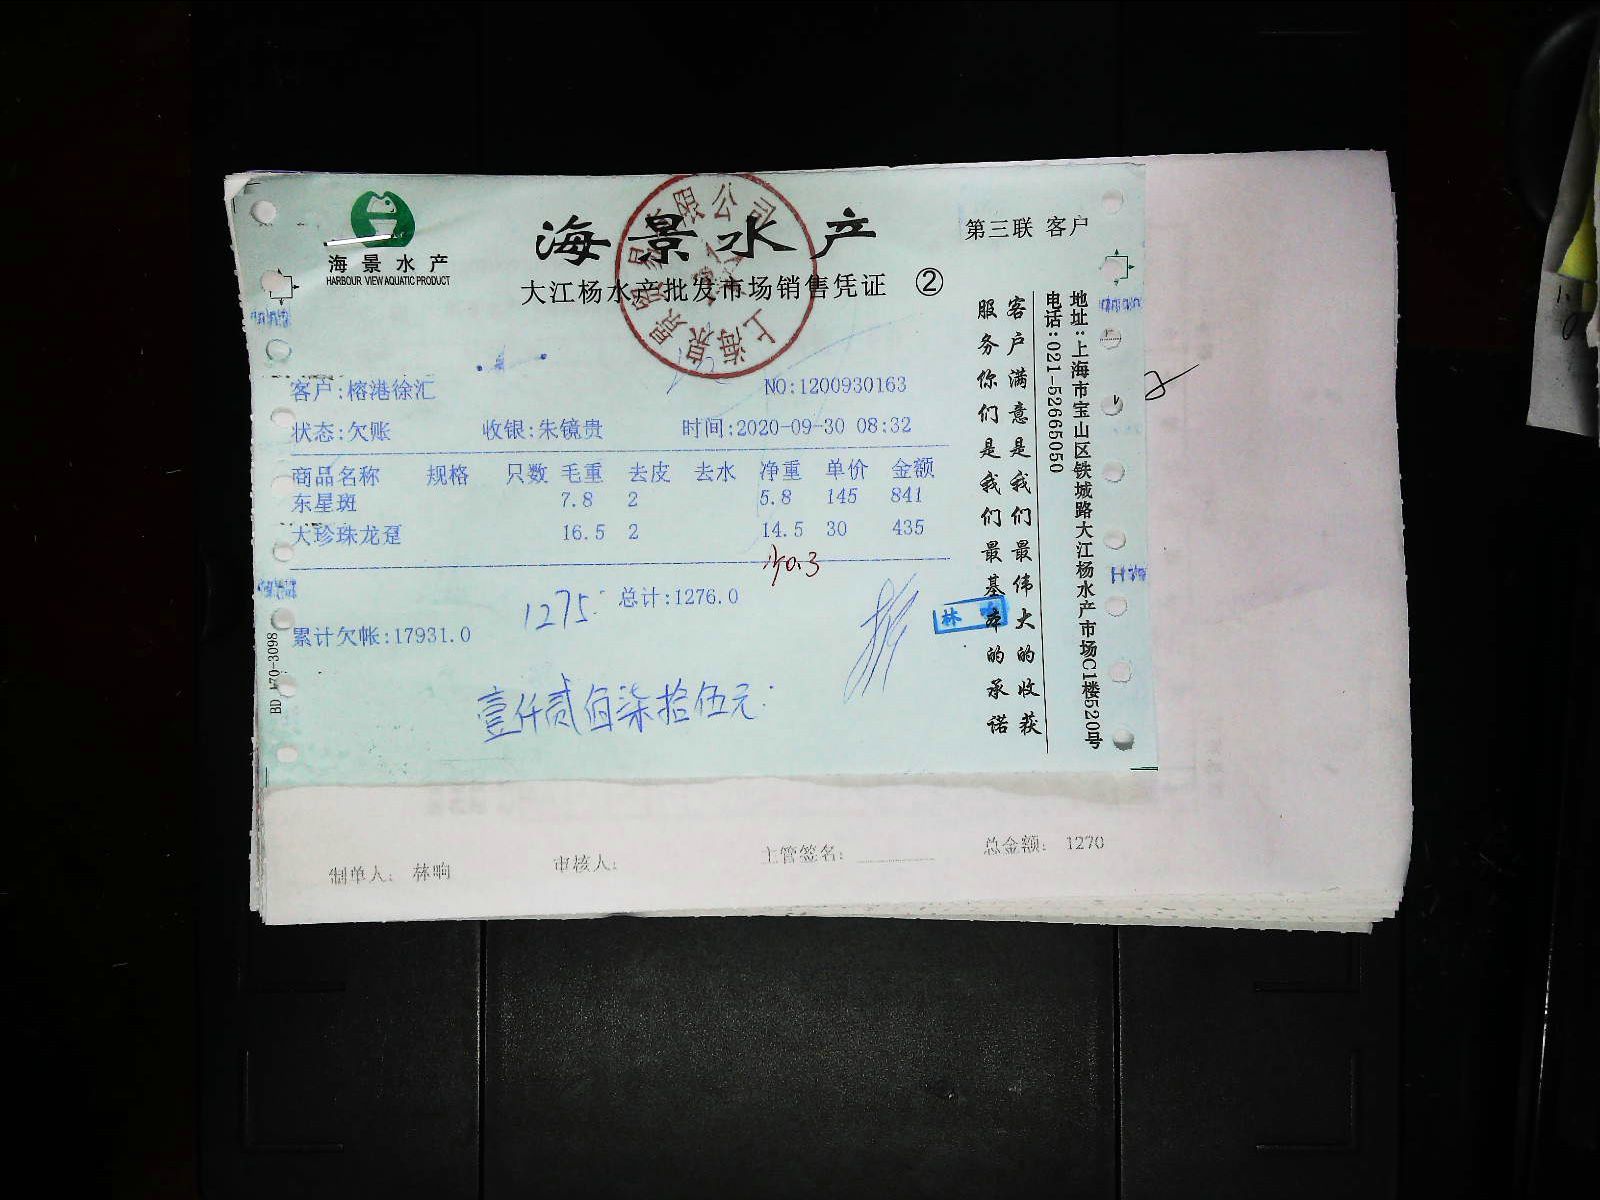 海景水产
HARBOUR VIEW AQUATIC PRODUCT
海景水产
大江杨水产批发市场销售凭证 ②
第三联 客户
客户:榕港徐汇
NO:1200930163
状态:欠账 收银:朱镜贵 时间:2020-09-30 08:32
商品名称 规格 只数 毛重 去皮 去水 净重 单价 金额
东星斑 7.8 2 5.8 145 841
大珍珠龙趸 16.5 2 14.5 30 435
少0.3
1275 总计:1276.0
累计欠帐:17931.0
壹仟贰佰柒拾伍元
客户满意是我们最伟大的收获
服务你们是我们最基本的承诺
地址:上海市宝山区铁城路大江杨水产市场C1楼520号
电话:021-52665050
制单人: 林响 审核人: 主管签名: 总金额: 1270